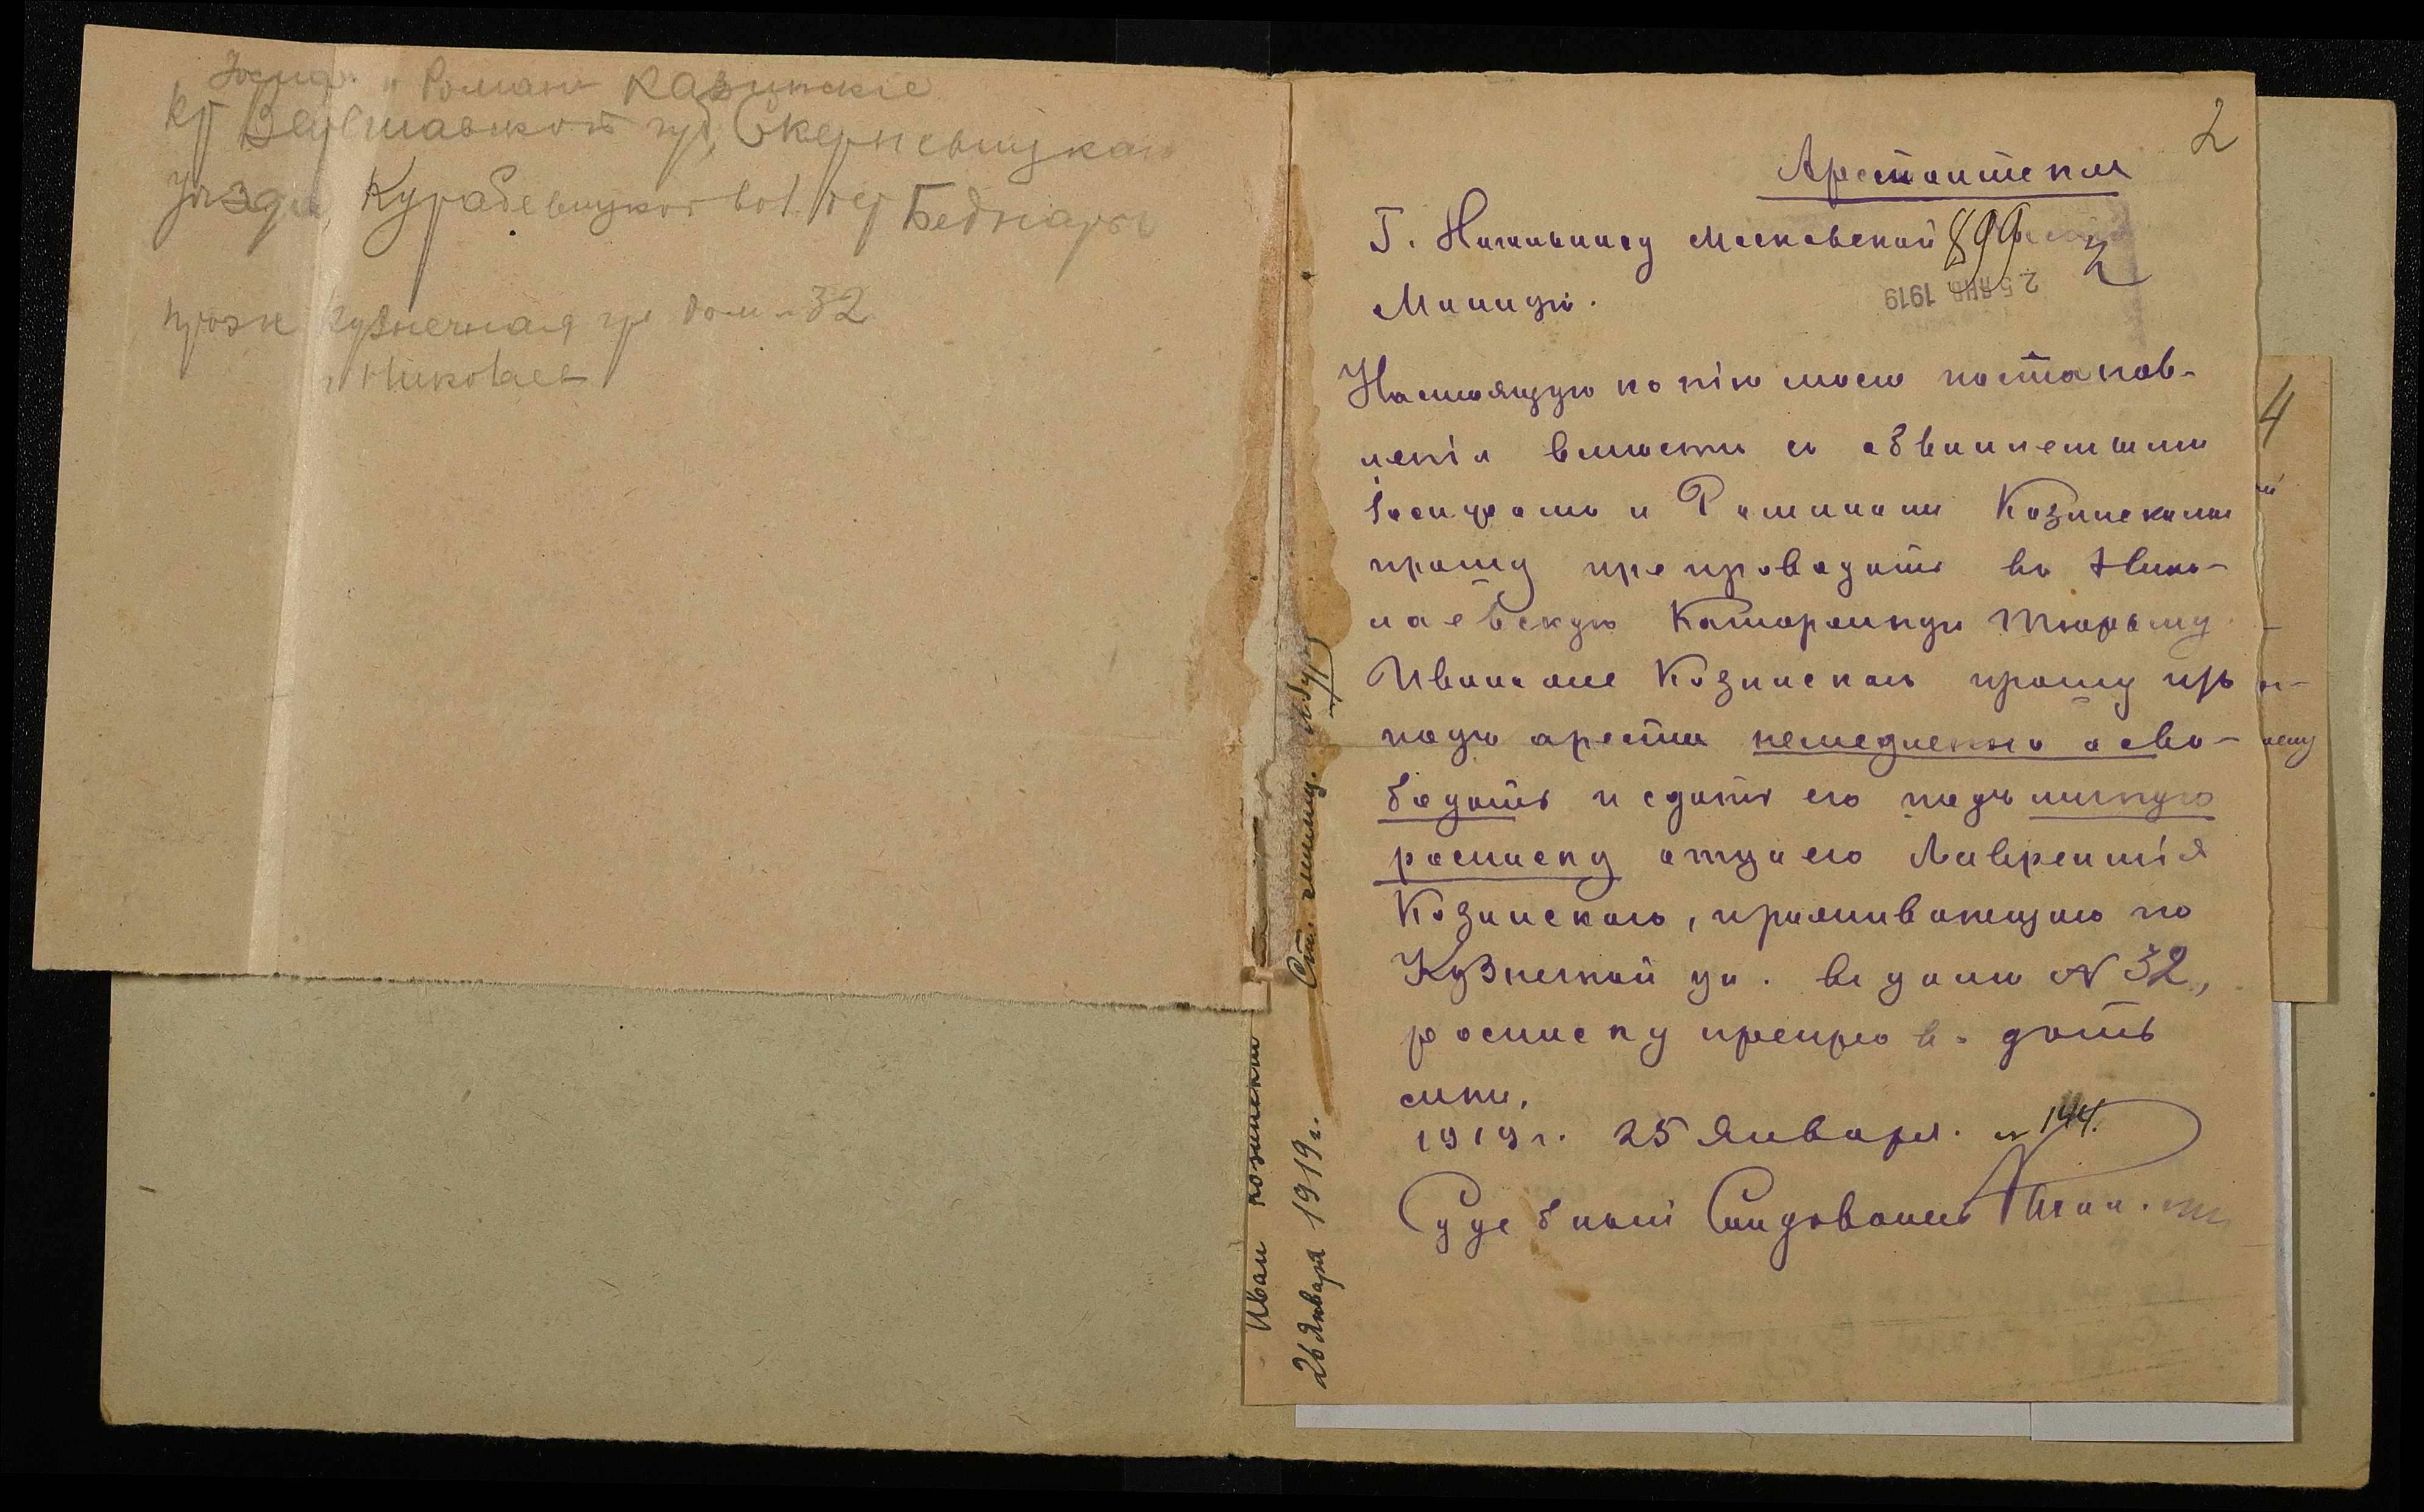 Іосифъ и Романъ Казинскіе
кр Варшавской губ, Скерневицкаго
уѣзда, Курабевицкой вол. дер Беднары
прож Кузнечная ул дом № 32
г Николаев
2
Арестантская
Г. Начальнику Московской 899
2
Милиціи.
25 ЯНВ 1919
Настоящую копію моего постанов-
ленія вмѣстѣ съ обвиняемыми
Іосифомъ и Романомъ Козинскими
прошу препроводить въ Нико-
лаевскую Каторжную тюрьму
Ивана же Козинскаго прошу изъ
подъ ареста немедленно осво-
бодить и сдать его подъ личную
росписку отца его Лаврентія
Козинскаго, проживающаго по
Кузнечной ул. въ домѣ № 32,
росписку препроводить
мнѣ.
1919 г. 25 Января. № 144.
Судебный Слѣдователь
Иван Козински
26 Января 1919 г. Ст. милиц.
4